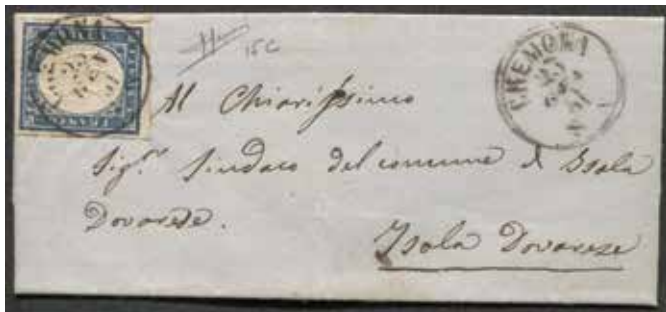 CREMONA
15c
CREMONA
Al Chiarissimo
Sig.r Sindaco del comune d Isola
Dovarese.
Isola Dovarese